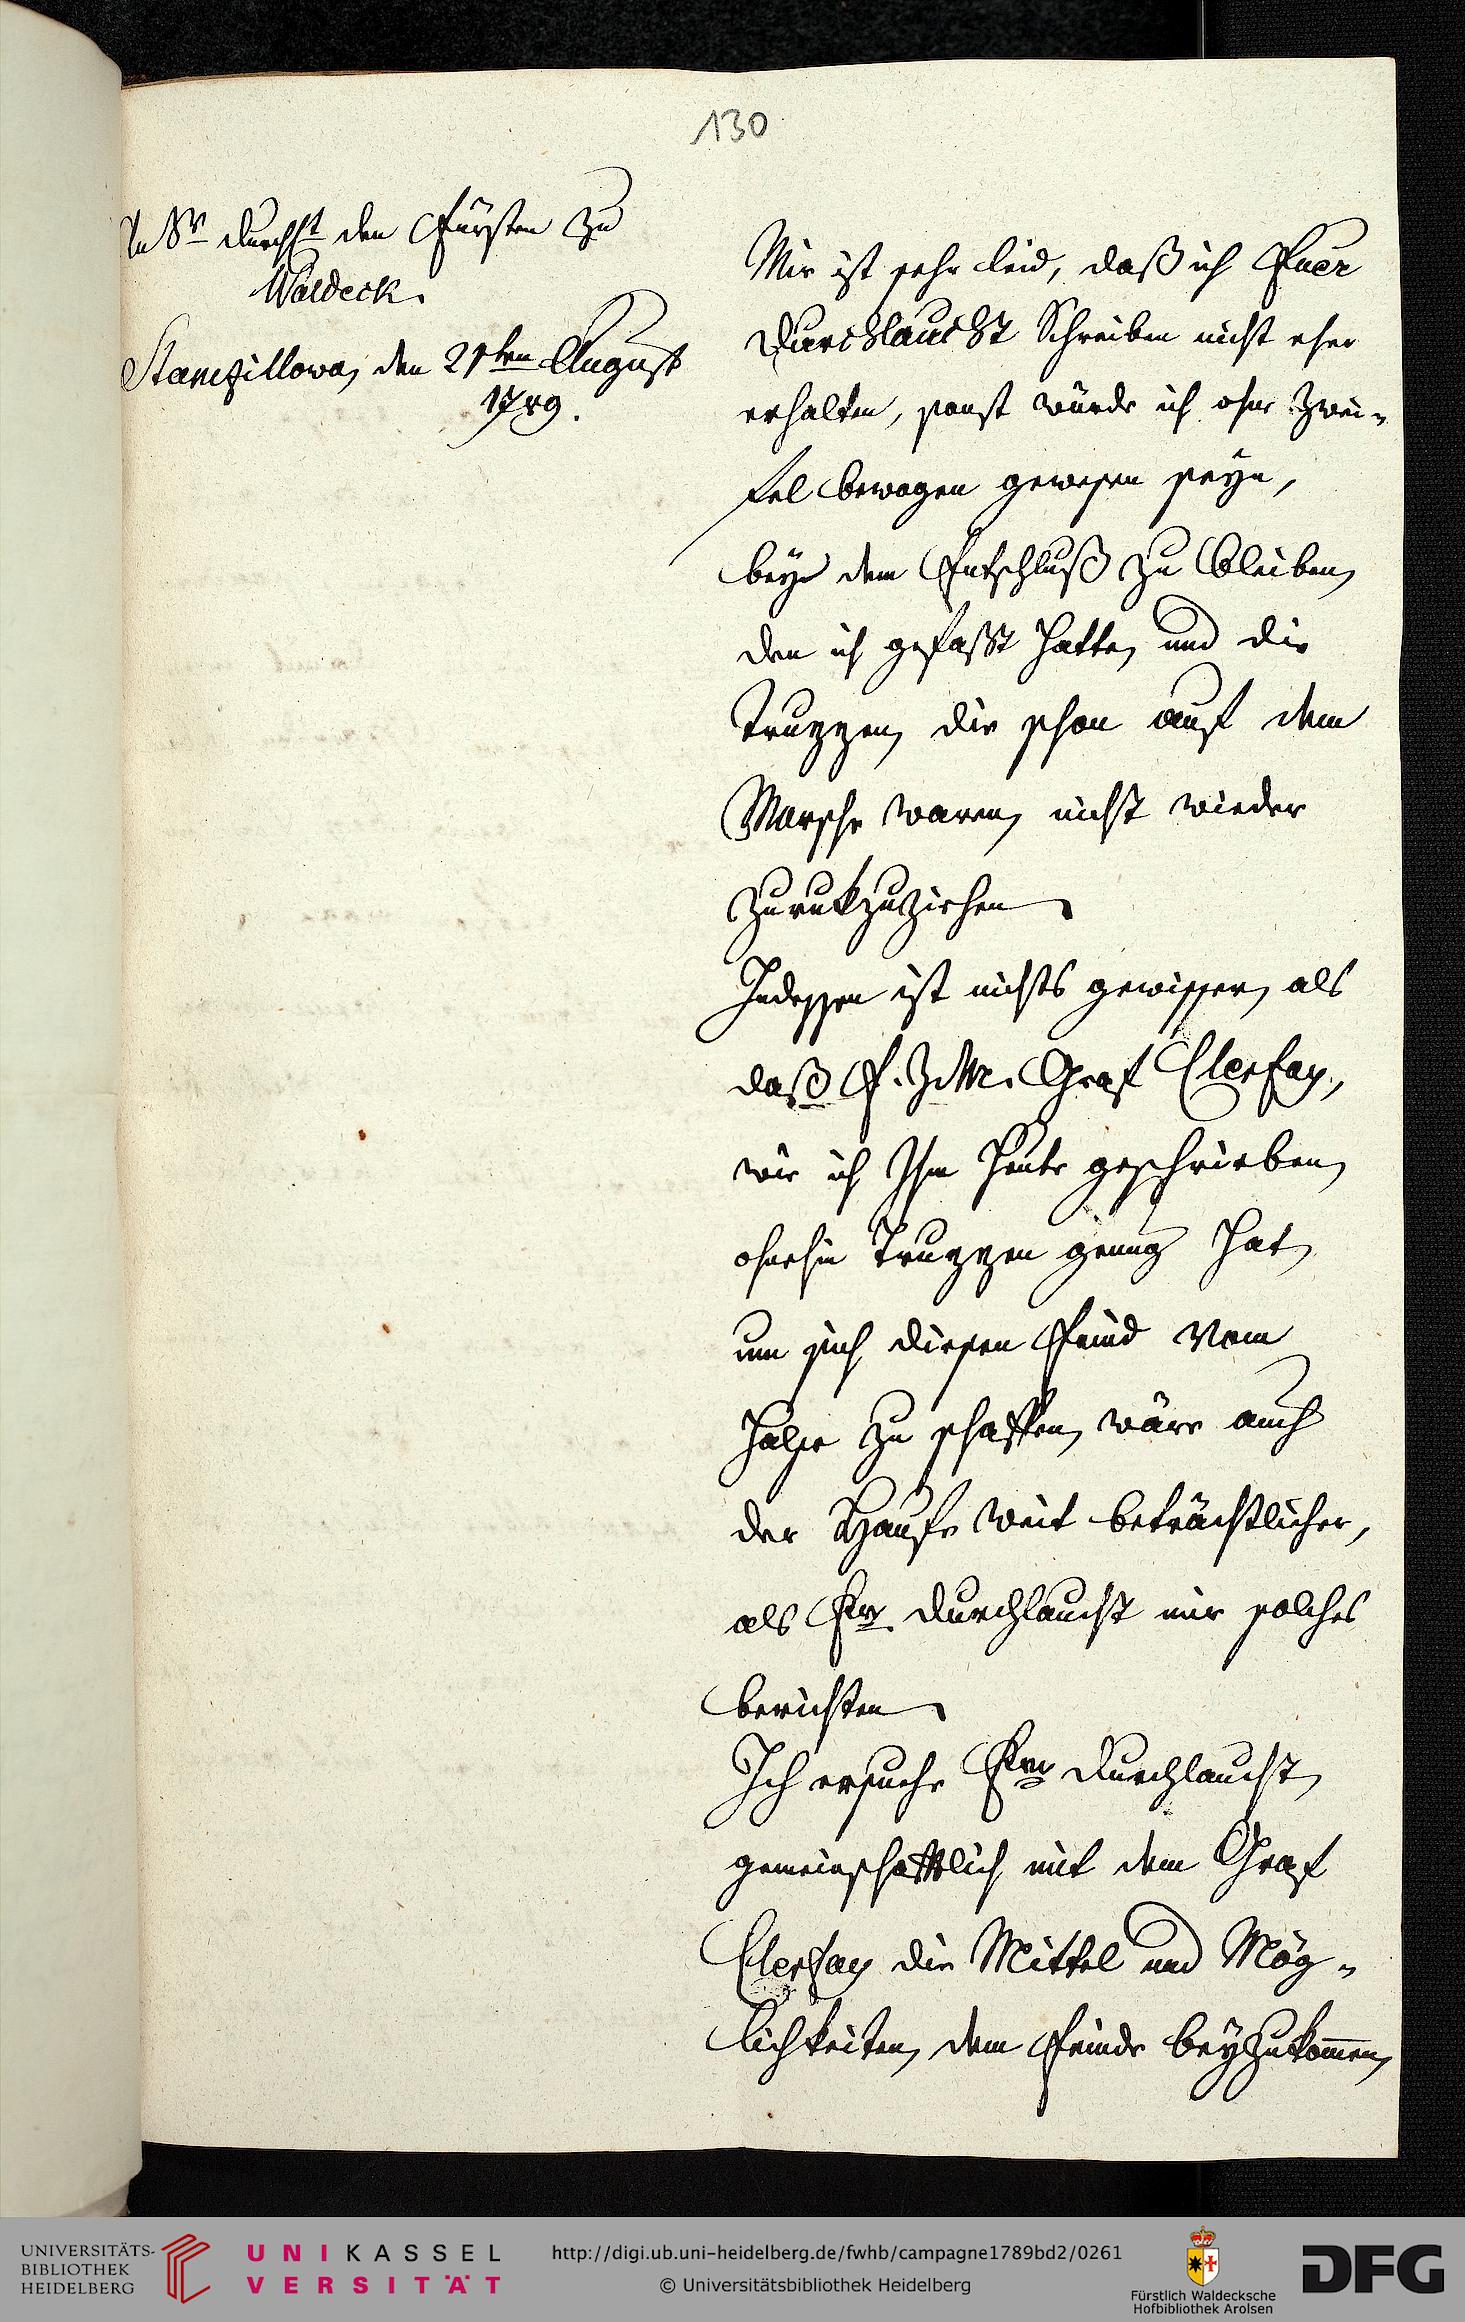 130
An Sr Durchlt den Fürsten zu
Waldeck.
den 21ten August
1789.
Mir ist sehr leid, daß ich Euer
Durchlaucht Schreiben nicht eher
erhalten, sonst würde ich ohne Zwei-
fel bewogen gewesen seyn,
beÿ dem Entschluß zu bleiben,
den ich gefaßt hatte, und die
Truppen, die schon auf dem
Marsche waren, nicht wieder
zurukzuziehen.
Indessen ist nichts gewisser, als
daß F. Z. M. Graf Clerfay,
wie ich Ihm heute geschrieben,
ohnehin Truppen genug hat,
um sich diesen Feind vom
Halse zu schaffen, wäre auch
der Haufe weit beträchtlicher,
als Euer Durchlaucht mir solches
berichten.
Ich ersuche Euer Durchlaucht,
gemeinschaftlich mit dem Graf
Clerfay die Mittel und Mög-
lichkeiten, dem Feinde beyzukom̅en,
UNIVERSITÄTS-
BIBLIOTHEK
HEIDELBERG
UNIKASSEL
VERSITÄT
http://digi.ub.uni-heidelberg.de/fwhb/campagne1789bd2/0261
© Universitätsbibliothek Heidelberg
Fürstlich Waldecksche
Hofbibliothek Arolsen
DFG